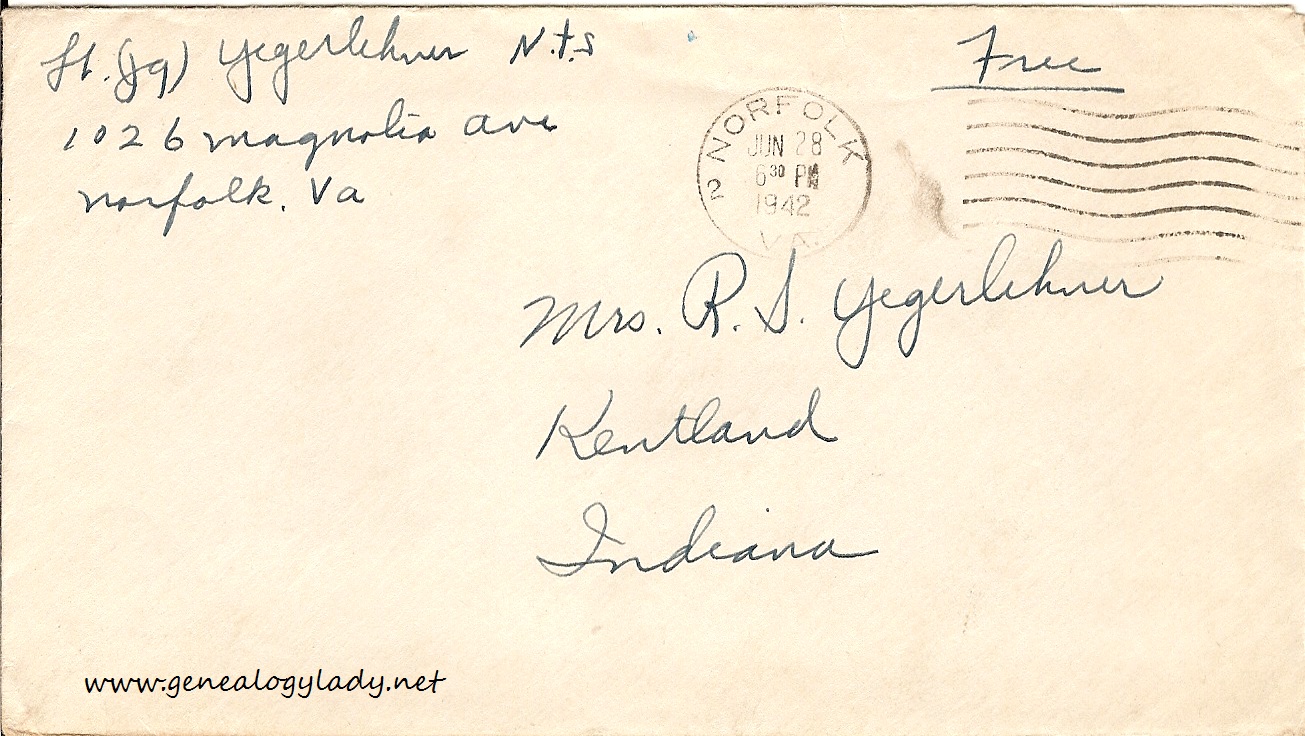 Lt. (jg) Yegerlehner N.t.s
1026 magnolia ave
norfolk. Va
Free
NORFOLK
2
JUN 28
6 30 PM
1942
VA.
Mrs. R. S. Yegerlehner
Kentland
Indiana
www.genealogylady.net